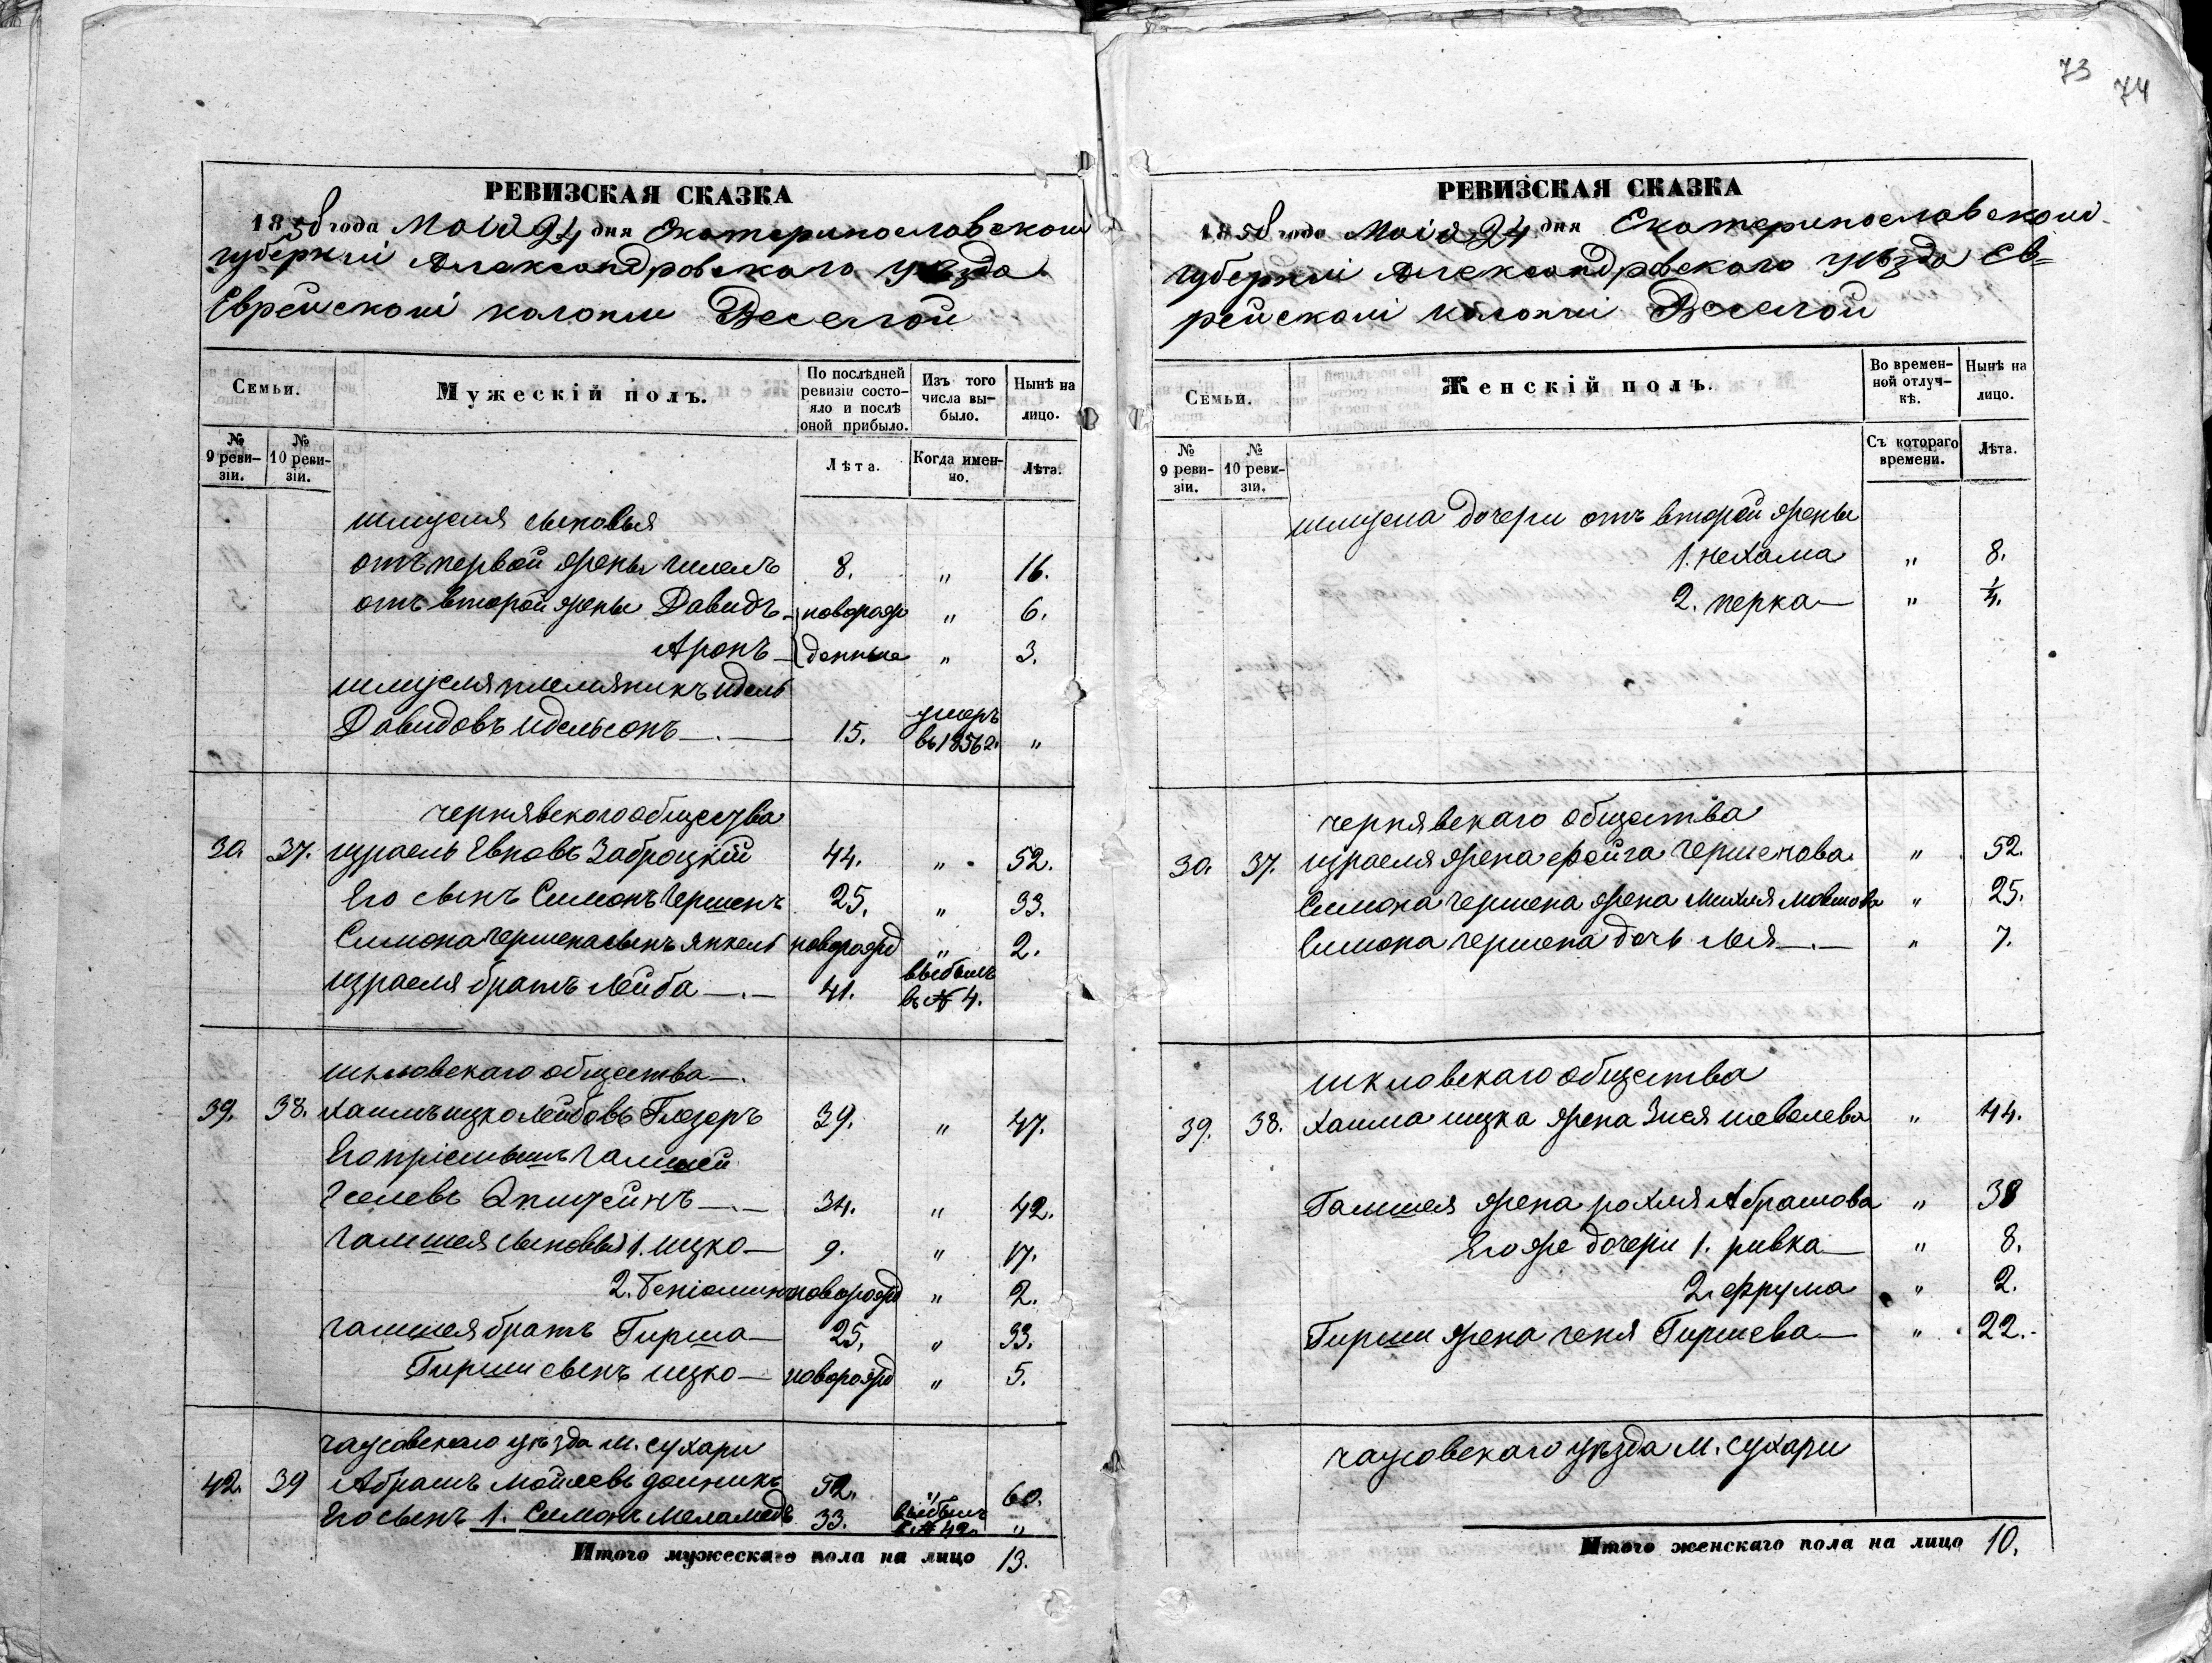 73
74
РЕВИЗСКАЯ СКАЗКА
1858 года Маія 24 дня Екатеринославской
губерніи Александровскаго уѣзда
Еврейской колоніи Веселой
Семьи.
Мужескій полъ.
По послѣдней ревизіи состояло и послѣ оной прибыло.
Изъ того числа выбыло.
Нынѣ на лицо.
№ 9 ревизіи.
№ 10 ревизіи.
Лѣта.
Когда именно.
Лѣта.
шмуеля сыновья
отъ первой жены 8. " 16.
отъ второй жены Давидъ новорож " 6.
Аронъ денные " 3.
шмуеля племяникъ идель
Давидовъ идельсонъ 15. умеръ въ 1856 г. "
чернявского общества
30. 37. израель Евновъ Заброцкій 44. " 52.
Его сынъ Симонъ Гершенъ 25. " 33.
Симона Гершена сынъ янкель новорожд " 2.
израеля братъ Лейба 41. выбылъ въ № 4.
шкловскаго общества
39. 38. хаимъ ицко Лейбовъ Глезеръ 39. " 47.
Его пріемышъ Гамшей
34. " 42.
Гамшея сыновья 1. ицко 9. " 17.
2. Беніоминъ новорожд " 2.
Гамшея братъ Гирша 25. " 33.
Гирши сынъ ицко новорожд " 5.
чаусовскаго уѣзда м. сухари
42. 39 Абрамъ 52. " 60.
Его сынъ 1. Симонъ меламедъ 33. выбылъ в № 42. "
Итого мужескаго пола на лицо 13.
РЕВИЗСКАЯ СКАЗКА
1858 года Маія 24 дня Екатеринославской
губерніи Александровскаго уѣзда Ев=
рейской колоніи Веселой
Семьи.
Женскій полъ.
Во временной отлучкѣ.
Нынѣ на лицо.
№ 9 ревизіи.
№ 10 ревизіи.
Съ котораго времени.
Лѣта.
шмуеля дочери отъ второй жены
1. нехама " 8.
2. перка "
чернявскаго общества
30. 37. израеля жена фейга Гершенова " 52.
Симона Гершена жена Михля Мовшова " 25.
Симона Гершена дочь Лея " 7.
шкловскаго общества
39. 38. Хаима ицка жена Зися шевелева " 44.
Гамшея жена рохля Абрамова " 38
Его же дочери 1. ривка " 8.
2. фрума " 2.
Гирши жена геня Гиршева " 22.
чаусовскаго уѣзда м. сухари
Итого женскаго пола на лицо 10.